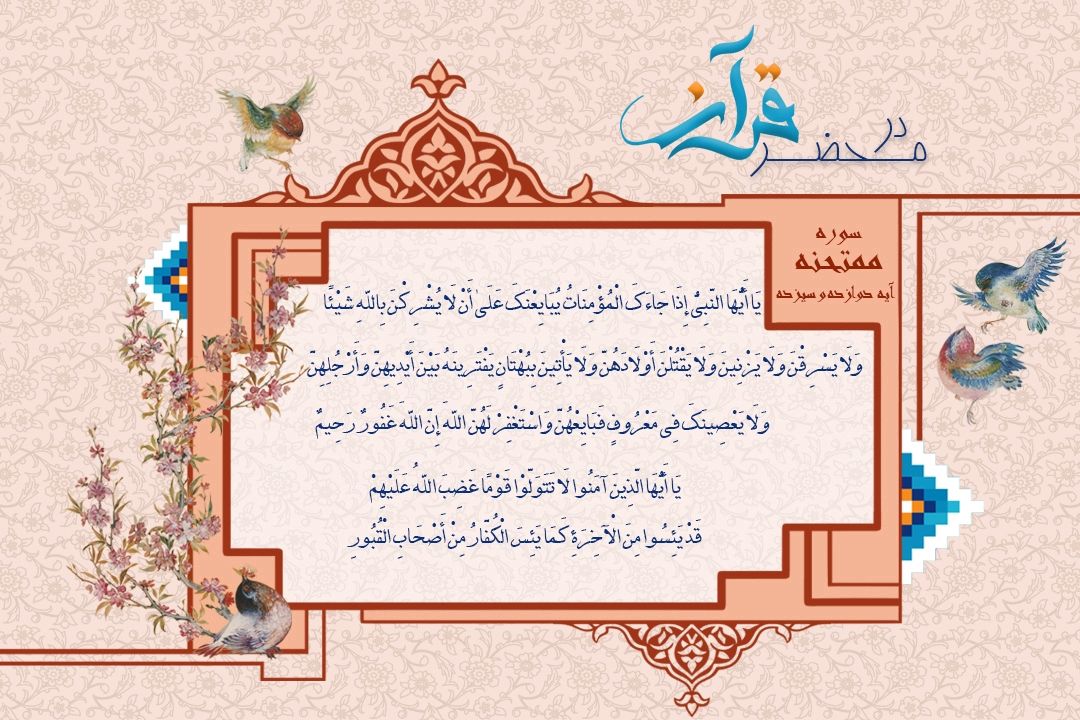 در محضر قرآن
سوره
ممتحنه
آیه دوازده و سیزده
يَا أَيُّهَا النَّبِيُّ إِذَا جَاءَكَ الْمُؤْمِنَاتُ يُبَايِعْنَكَ عَلَىٰ أَنْ لَا يُشْرِكْنَ بِاللَّهِ شَيْئًا
وَلَا يَسْرِقْنَ وَلَا يَزْنِينَ وَلَا يَقْتُلْنَ أَوْلَادَهُنَّ وَلَا يَأْتِينَ بِبُهْتَانٍ يَفْتَرِينَهُ بَيْنَ أَيْدِيهِنَّ وَأَرْجُلِهِنَّ
وَلَا يَعْصِينَكَ فِي مَعْرُوفٍ فَبَايِعْهُنَّ وَاسْتَغْفِرْ لَهُنَّ اللَّهَ إِنَّ اللَّهَ غَفُورٌ رَحِيمٌ
يَا أَيُّهَا الَّذِينَ آمَنُوا لَا تَتَوَلَّوْا قَوْمًا غَضِبَ اللَّهُ عَلَيْهِمْ
قَدْ يَئِسُوا مِنَ الْآخِرَةِ كَمَا يَئِسَ الْكُفَّارُ مِنْ أَصْحَابِ الْقُبُورِ